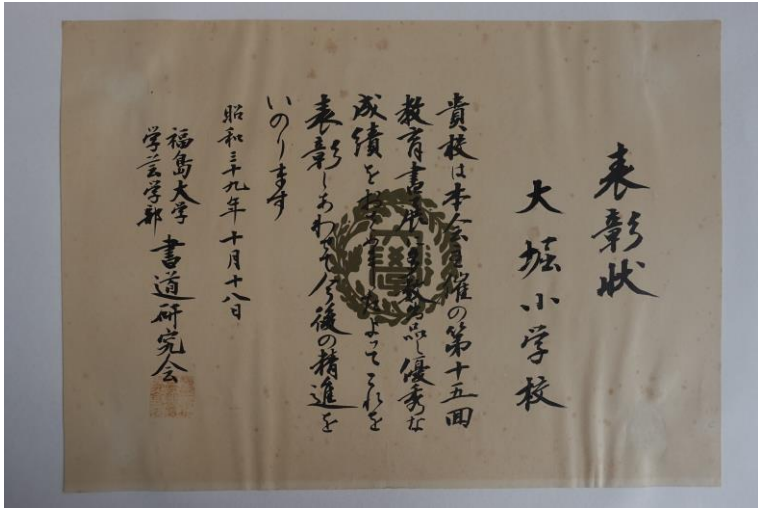 表彰状
大堀小学校
貴校は本会主催の第十五回
教育書展に多数出品し優秀な
成績をおさめましたよってこれを
表彰しあわせて今後の精進を
いのります
昭和三十九年十月十八日
福島大学
学芸学部
書道研究会
大学